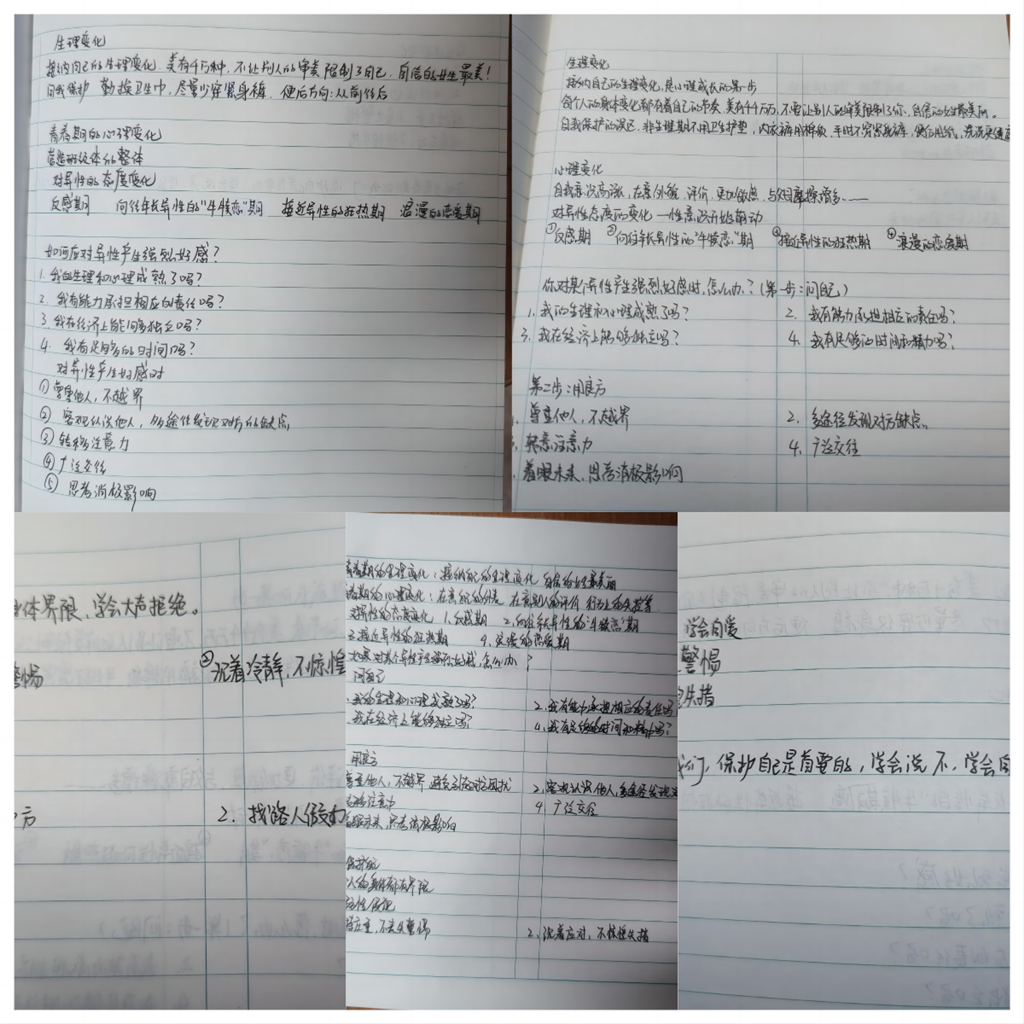 生理变化
接纳自己的生理变化.美有千万种,不让别人的审美限制了自己.自信的女生最美!
自我保护 勤换卫生巾,尽量少穿紧身裤.便后方向:从前往后
青春期的心理变化
营造班级体的整体
对异性的态度变化
反感期 向往年长异性的"牛犊恋"期 接近异性的狂热期 浪漫的恋爱期
如何应对异性产生强烈好感?
1.我的生理和心理成熟了吗?
2.我有能力承担相应的责任吗?
3.我在经济上能够独立吗?
4.我有足够的时间吗?
对异性产生好感时
①尊重他人,不越界
②客观认识他人,多途径发现对方的缺点
③转移注意力
④广泛交往
⑤思考消极影响
生理变化
接纳自己的生理变化,是心理成长的第一步
每个人的身体变化都有着自己的节奏.美有千千万万,不要让别人的审美限制了你.自信的女生最美丽。
自我保护的误区.非生理期不用卫生护垫,内衣裤用棉质,平时不穿紧身裤,
心理变化
自我意识高涨,在意外貌、评价、更加敏感,与父母摩擦增多……
对异性态度的变化 一性意识开始萌动
①反感期 ②向往年长异性的"牛犊恋"期 ③接近异性的狂热期 ④浪漫的恋爱期
你对某个异性产生强烈好感时,怎么办?(第一步:问自己)
1.我的生理和心理成熟了吗? 2.我有能力承担相应的责任吗?
3.我在经济上能够独立吗? 4.我有足够的时间和精力吗?
第二步:用良方
尊重他人,不越界 2.多途径发现对方缺点。
转意注意力 4.广泛交往
着眼未来,思考消极影响
体界限,学会大声拒绝。
警惕 ②沉着冷静,不惊惶
方 2.找路人假扮
青春期的生理变化:接纳自己的生理变化 自信的女生最美丽
春期的心理变化:在意别人的评价
对异性的态度变化 1.反感期 2.向往年长异性的"牛犊恋"期
3.接近异性的狂热期 4.浪漫的恋爱期
对某个异性产生强烈好感,怎么办?
问自己
我的生理和心理成熟了吗? 2.我有能力承担相应的责任吗
我在经济上能够独立吗? 4.我有足够的时间和精力吗?
用良方
尊重他人,不越界 避免引起对方困扰 2.客观认识他人,多途径发现
转移注意力 4.广泛交往
着眼未来,思考消极影响
人的身体都有界限
不失去警惕 2.沉着应对,不惊惶失措
学会自爱
警惕
失措
我们,保护自己是首要的,学会说不,学会自